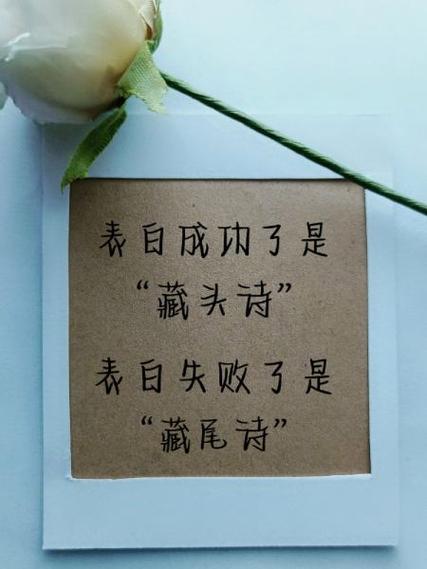 表白成功了是
“藏头诗”
表白失败了是
“藏尾诗”